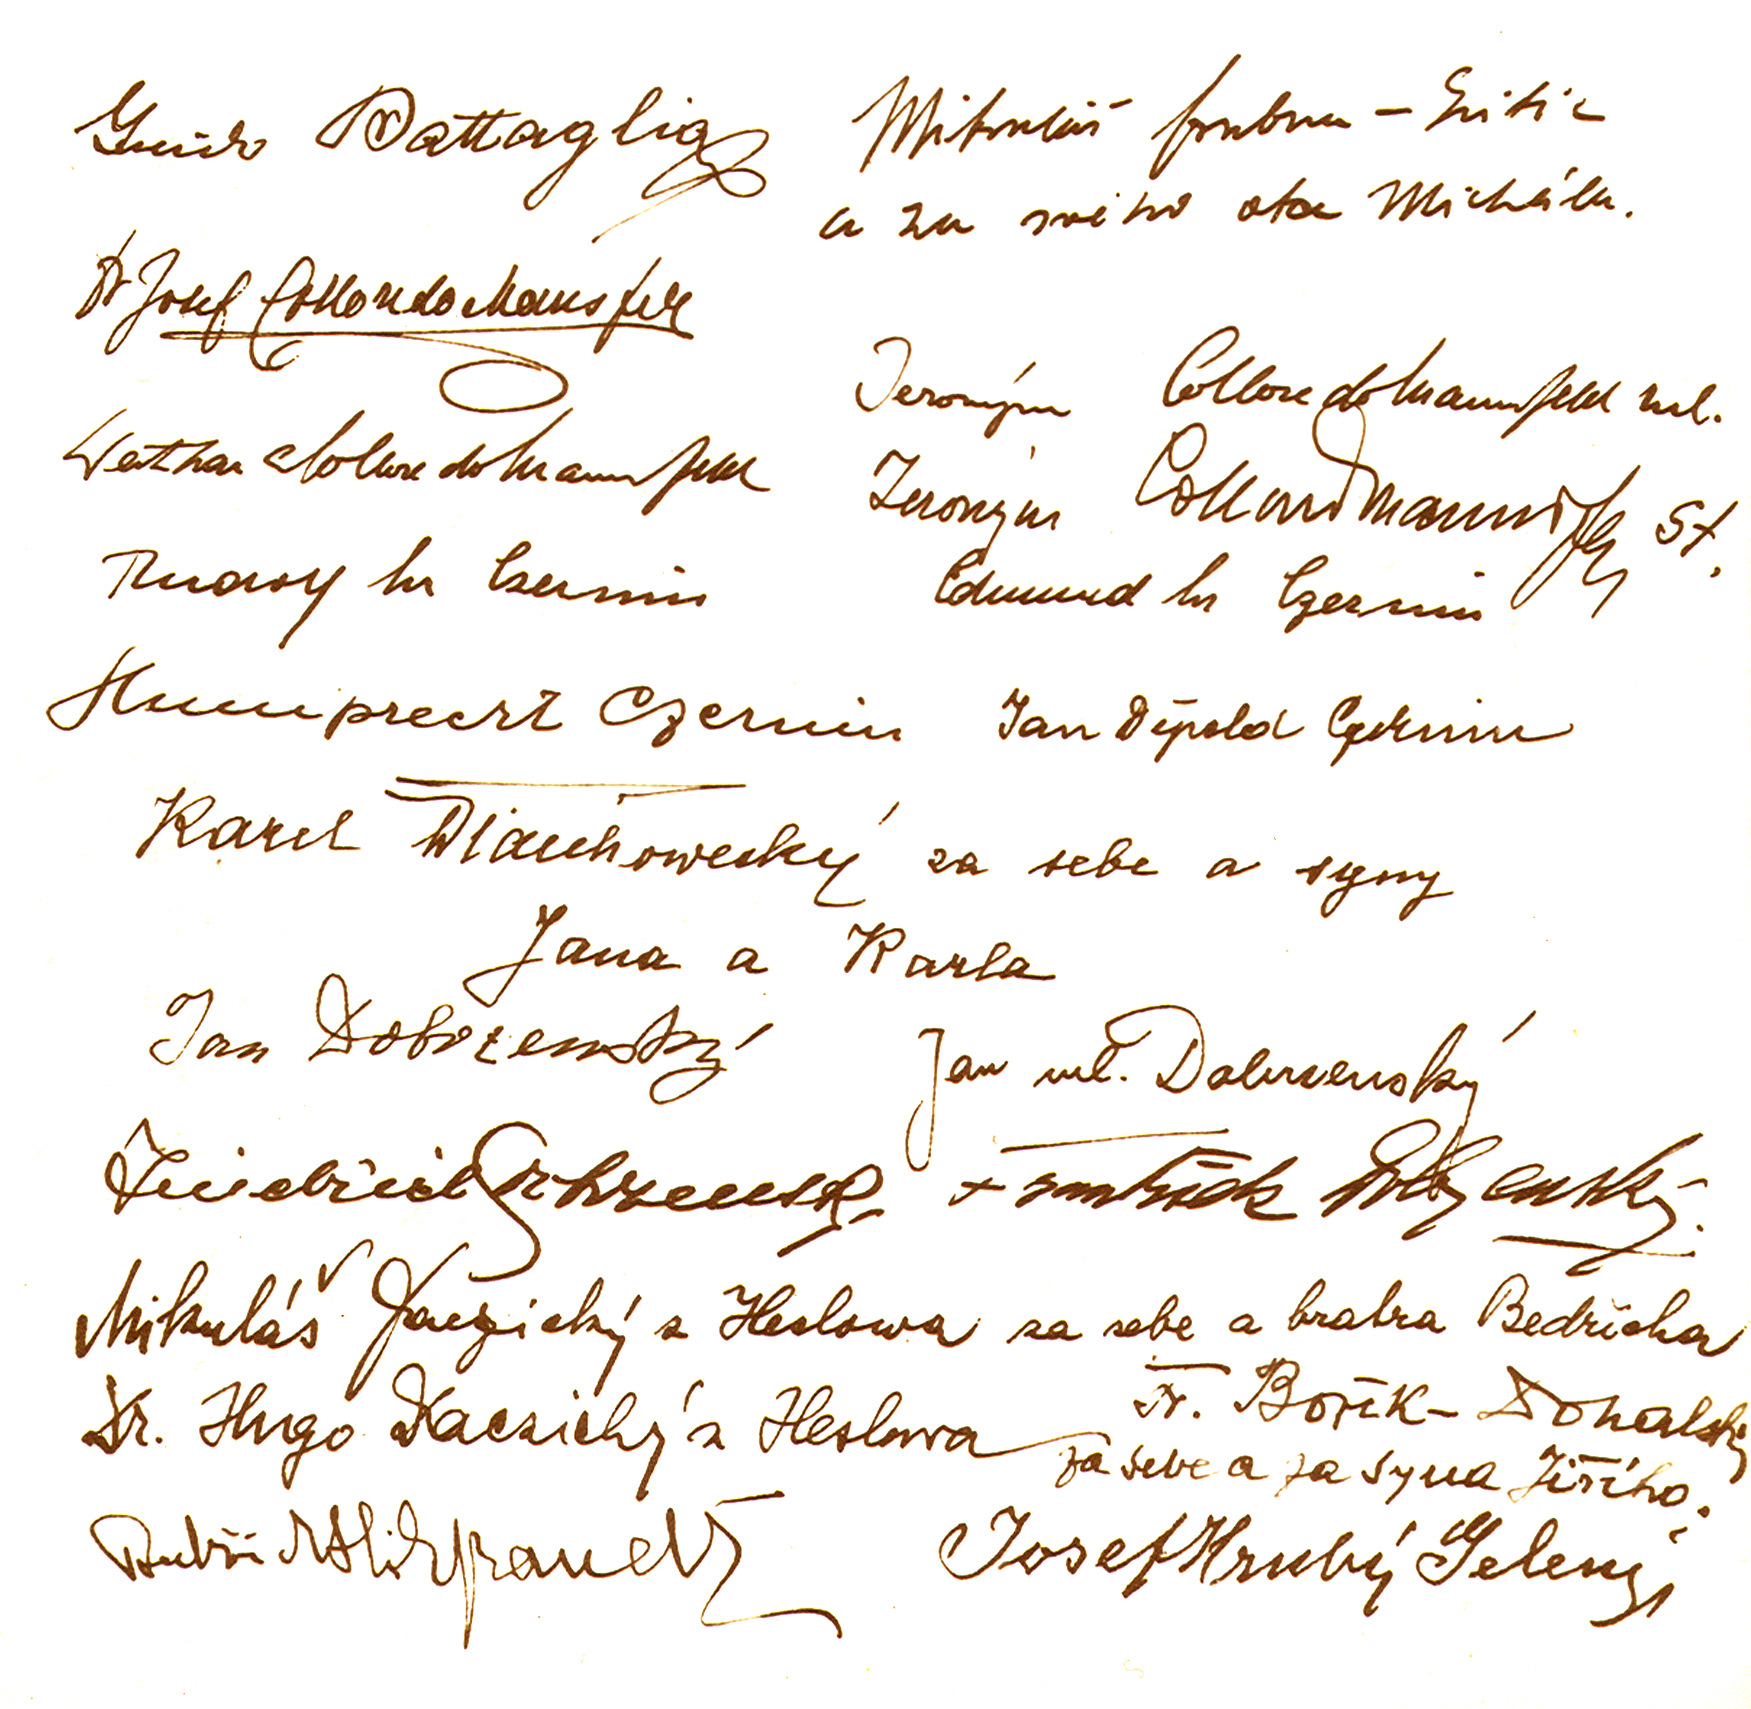 Guido Battaglia
Mikuláš Bubna-Litic
a za svého otce Michala.
Dr Josef Colloredo Mansfeld
Jeroným Colloredo Mannsfeld ml.
Weikhard Colloredo Mannsfeld
Jeroným Colloredo Mannsfeld st.
Theodor hr Czernin
Edmund hr Czernin
Humprecht Czernin
Jan Děpold Czernin
Karel Dlauhowesky za sebe a syny
Jana a Karla
Jan Dobrzenský
Jan ml. Dobrzenský
František Dobrzenský
Mikuláš Daczický z Heslowa za sebe a bratra Bedřicha
Dr. Hugo Daczický z Heslowa
Dr. Bořek-Dohalský
za sebe a za syna Jiřího.
Hildprandt
Josef Hrubý Gelenj